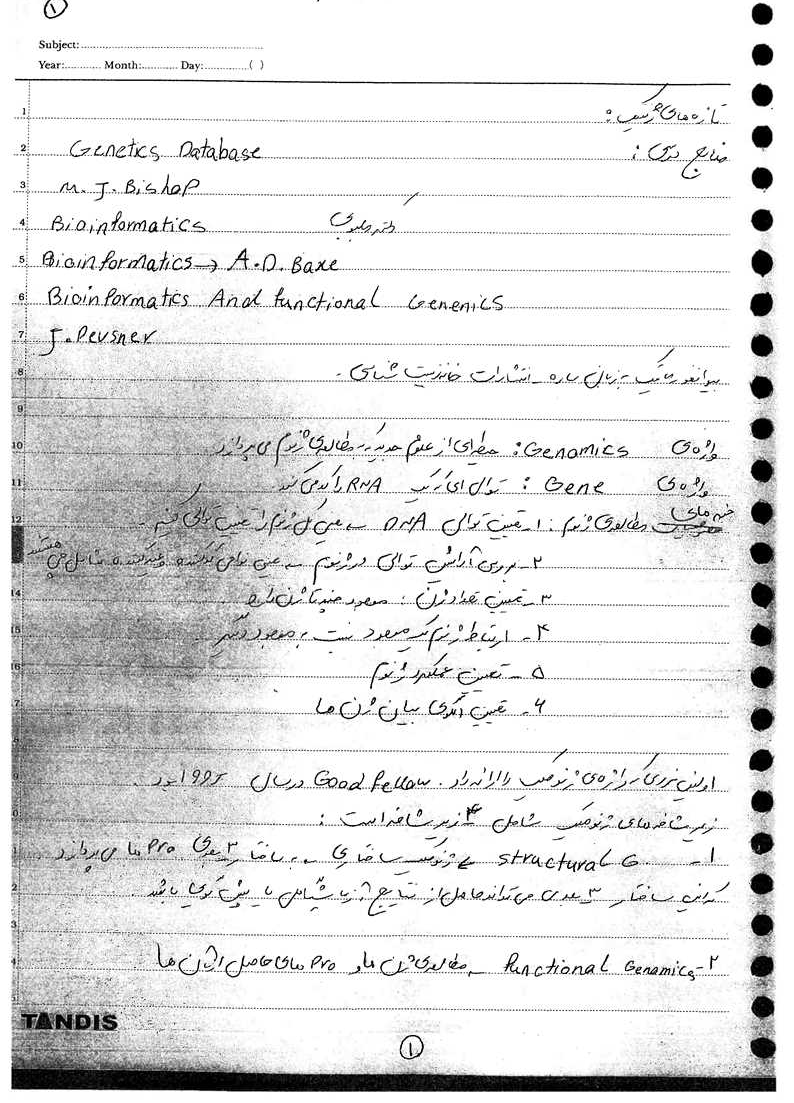 ①
Subject:
Year: Month: Day: ( )
1 تازه های ژنتیک :
2 منابع درسی : Genetics Database
3 M. J. Bishop
4 Bioinformatics دکتر
5 Bioinformatics → A.D. Baxe
6 Bioinformatics And functional Genemics
7 J. Pevsner
8 بیوانفورماتیک به زبان ساده - انتشارات خانه زیست شناسی .
9
10 واژه ی Genomics : حیطه ای از علوم جدید که به مطالعه ی ژنوم می پردازد
11 واژه ی Gene : توالی ای که یک RNA را کد می کند
12 جنبه های مطالعه ی ژنوم : ۱- تعیین توالی DNA یعنی کل ژنوم را تعیین توالی کنیم .
۲- بررسی آرایش توالی در ژنوم یعنی نواحی کدکننده و غیرکدکننده شامل چی هستند
14 ۳- تعیین تعداد ژن : موجود چند تا ژن دارد
15 ۴- ارتباط ژنوم یک موجود نسبت به موجود دیگر .
16 ۵- تعیین عملکرد ژنوم
17 ۶- تعیین الگوی بیان ژن ها
اولین فردی که واژه ی ژنومیک را ارائه داد . Good fellow در سال ۱۹۹۲ بود .
زیر شاخه های ژنومیک شامل ۴ زیر شاخه است :
۱- structural G ژنومیک ساختاری به ساختار ۳ بعدی Pro ها می پردازد
که این ساختار ۳ بعدی می تواند حاصل از نتایج آزمایشگاهی یا پیش گویی باشد .
۲- Functional Genomics مطالعه ی ژن ها و Pro های حاصل از ژن ها
TANDIS
①